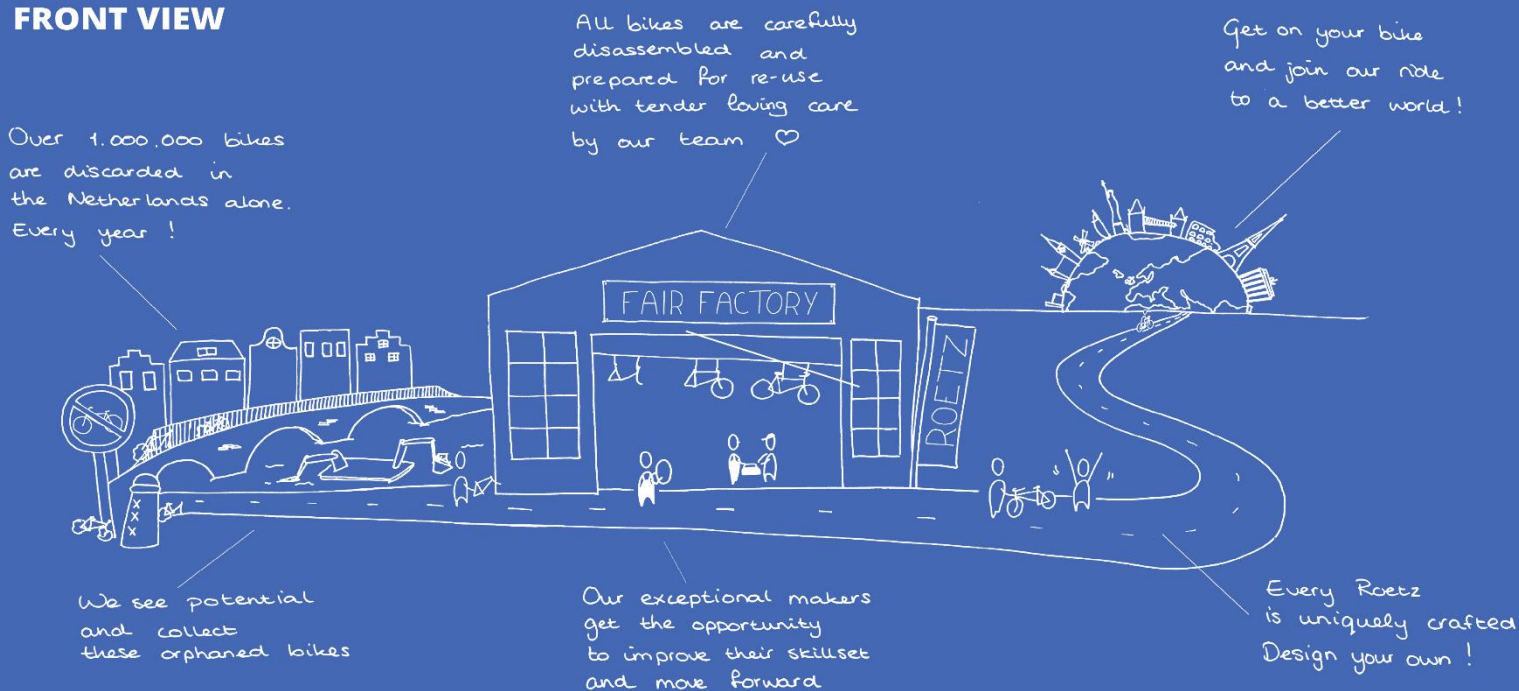 FRONT VIEW
Over 1.000.000 bikes
are discarded in
the Netherlands alone.
Every year !
All bikes are carefully
disassembled and
prepared for re-use
with tender loving care
by our team ♡
Get on your bike
and join our ride
to a better world !
FAIR FACTORY
ROETZ
X
X
X
We see potential
and collect
these orphaned bikes
Our exceptional makers
get the opportunity
to improve their skillset
and move forward
Every Roetz
is uniquely crafted
Design your own !